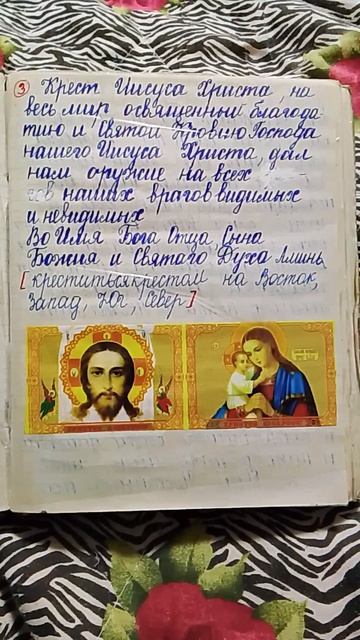 3 Крест Иисуса Христа, на
весь мир освященный благода
тию и Святой Кровию Господа
нашего Иисуса Христа, дал
нам оружие на всех
нашых врагов видимых
и невидимых
Во Имя Бога Отца, Сына
Божия и Святого Духа Аминь
[креститься крестом на Восток,
Запад, Юг, Север]